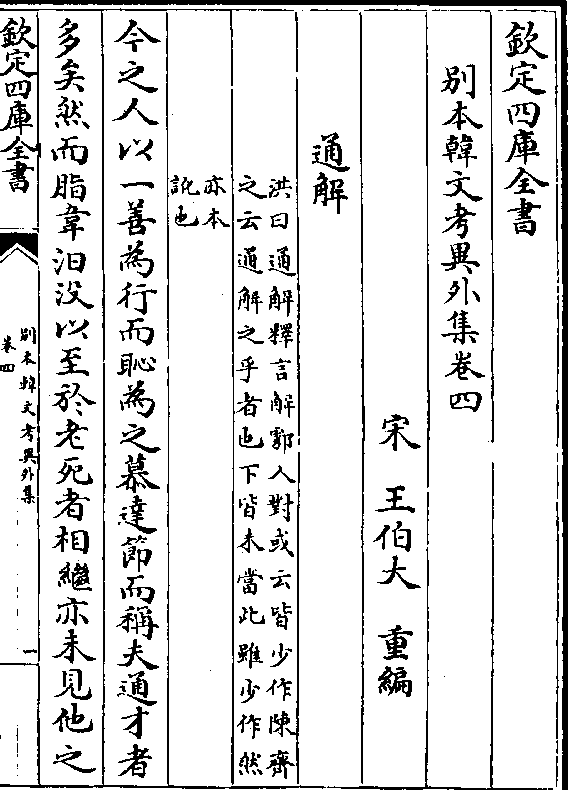 欽定四庫全書
别本韓文考異外集卷四
宋　王伯大　重編
通解
洪曰通解釋言解鄠人對或云皆少作陳齊
之云通解之乎者也下皆未當此雖少作然
亦本
訛也
今之人以一善為行而恥為之慕達節而稱夫通才者
多矣然而脂韋汩没以至於老死者相繼亦未見他之
欽定四庫全書
别本韓文考異外集
卷四
一